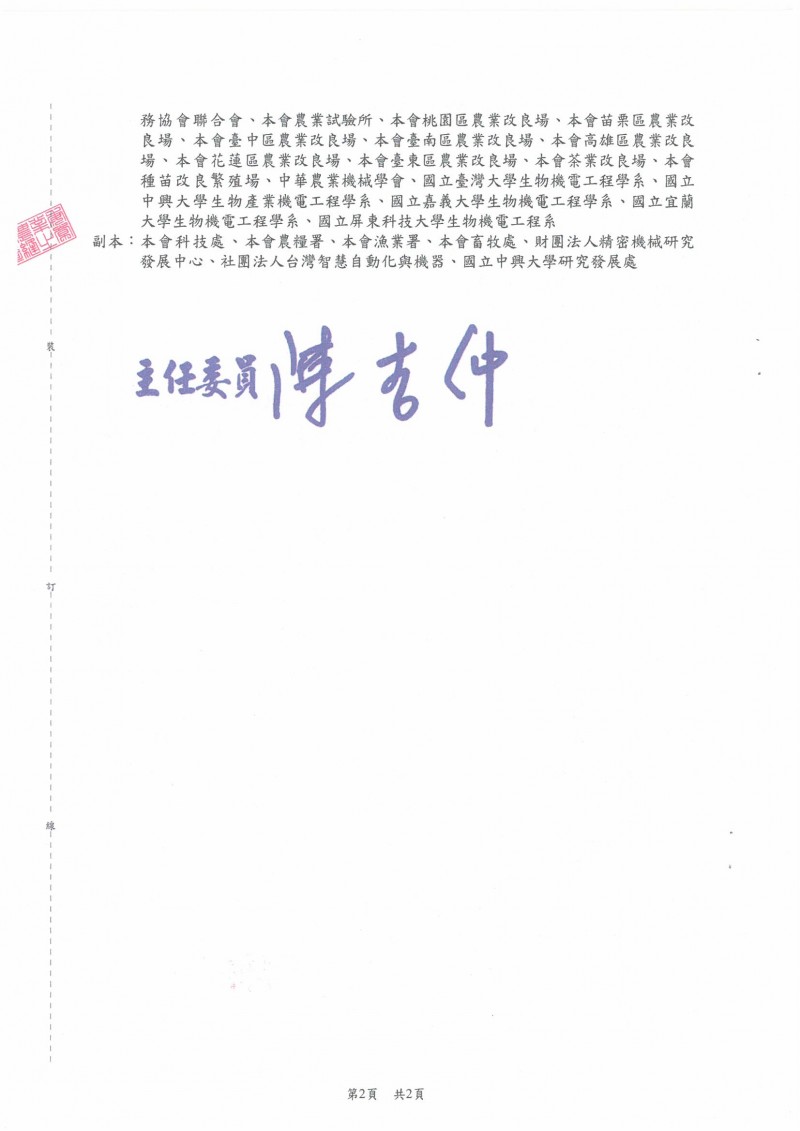 務協會聯合會、本會農業試驗所、本會桃園區農業改良場、本會苗栗區農業改
良場、本會臺中區農業改良場、本會臺南區農業改良場、本會高雄區農業改良
場、本會花蓮區農業改良場、本會臺東區農業改良場、本會茶業改良場、本會
種苗改良繁殖場、中華農業機械學會、國立臺灣大學生物機電工程學系、國立
中興大學生物產業機電工程學系、國立嘉義大學生物機電工程學系、國立宜蘭
大學生物機電工程學系、國立屏東科技大學生物機電工程系
副本：本會科技處、本會農糧署、本會漁業署、本會畜牧處、財團法人精密機械研究
發展中心、社團法人台灣智慧自動化與機器、國立中興大學研究發展處
主任委員 陳吉仲
裝
訂
線
第2頁 共2頁